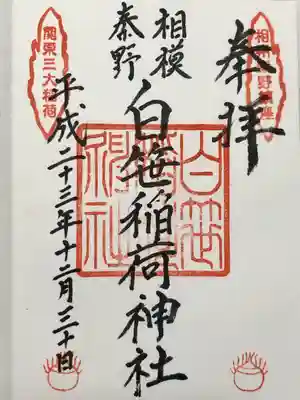 奉拝
相模
秦野
白笹稲荷神社
平成二十三年十二月三十日
関東三大稲荷
白笹稲荷神社